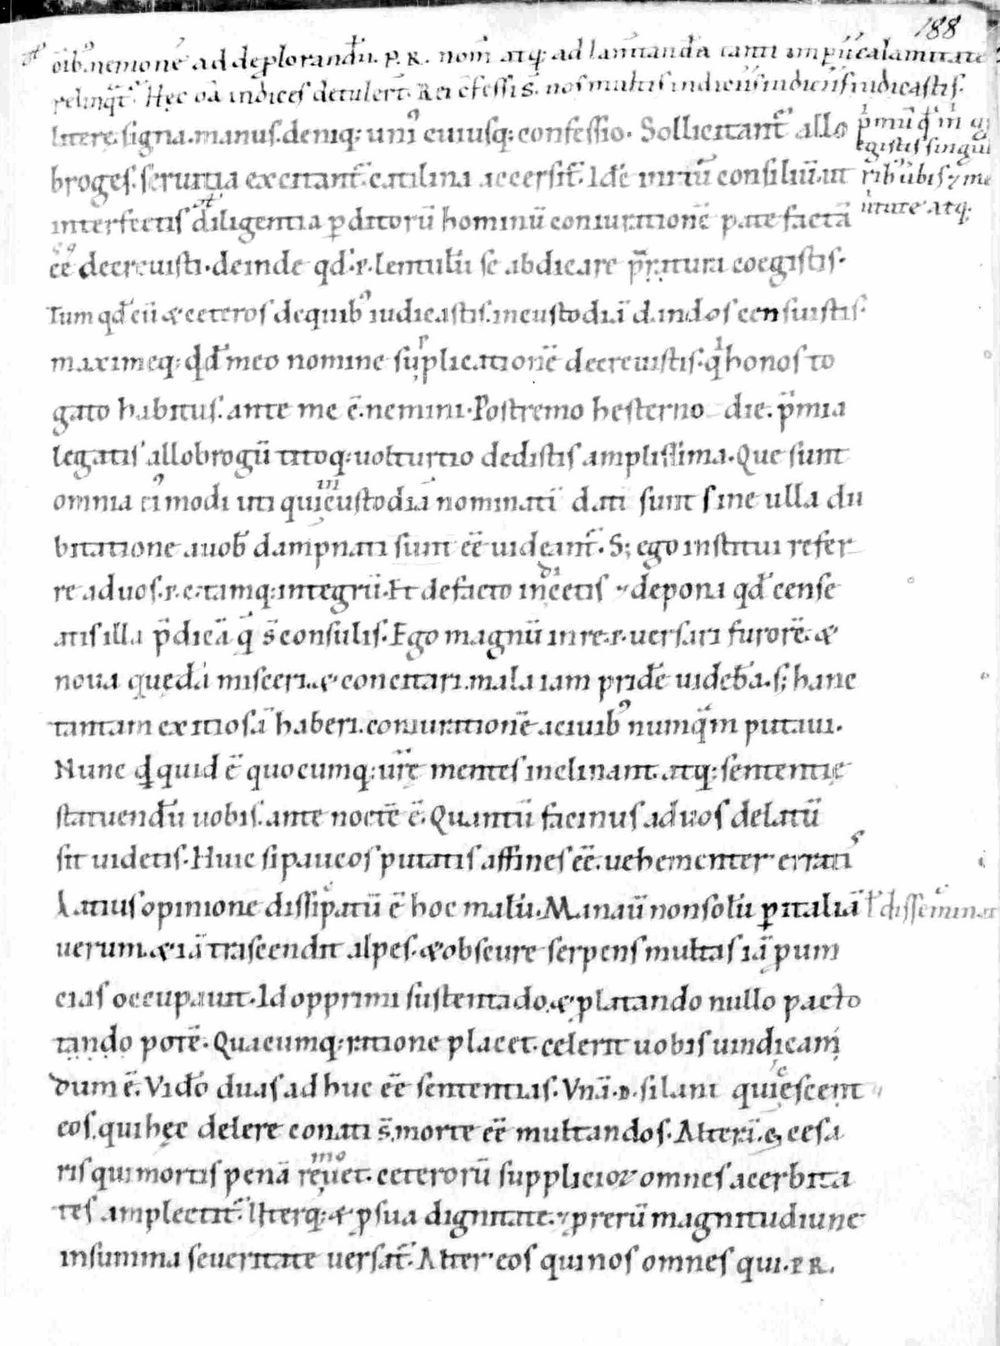 188
oīb; nemo nē ad deplorandū. P. R. nom̄ atq; ad lam̄tandā tanti imp̄ii calamitatē
relinq̄t. Hęc oā indices detulert̄. Rei c̄fessi s̄. nos multis iudiciis iudicastis.
litere. signa. manus. deniq; uni' cuiusq; confessio. Sollicitant̄ allo
p̄mū q̄ m̄ ḡ
egistis singul
broges. seruitia excitant̄. catilina accersit̄. Id ē initū consiliū. ut
rib ūbis ⁊ me
interfectis diligentia pditorū hominū coniurationē patefactā
ūtute atq;
ēē decreuisti. deinde qd̄. P. lentulū se abdicare p̄ritura coegistis.
Tum qd̄ eū & ceteros de quib; iudicastis. in custodiā dandos censuistis.
maximeq; qd̄ meo nomine supplicationē decreuistis. q̄ honos to
gato habitus. ante me ē. nemini. Postremo hesterno die. p̄mia
legatis allobrogū titoq; uolturtio dedistis amplissima. Que sunt
omnia ei' modi uti qui in custodiā nominatī dati sunt sine ulla du
bitatione a uob̄ dampnati sunt ēē uideant̄. S; ego institui refer
re ad uos. P. C. tamq; integrū. Et de facto incetis ⁊ depona qd̄ cense
di
atis illa p̄dicā q̄ s̄ consulis. Ego magnū in re. P. uersari furorē. &
noua quędā misceri. & concitari. mala iam pridē uidebā. s; hanc
tantam exitiosā haberi. coniurationē a ciuib; numq̄m putaui.
Nunc qd quid ē quocumq; urē mentes inclinant. atq; sententię
statuendū uobis. ante noctē ē. Quantū facinus ad uos delatū
sit uidetis. Huic si paucos putatis affines ēē. uehementer errati
s
Latius opinione dissipatū ē hoc malū. Manaū non solū p italiā
ł disseminat
uerum. & iā trascendit alpes. & obscure serpens multas iā prouin
cias occupauit. Id opprimi sustentado. & platando nullo pacto
tando potē. Quacumq; ratione placet. celerit uobis uindicam
dum ē. Video duas adhuc ēē sententias. Vnā. D. silani qui escent
eos. qui hęc delere conati s̄. morte ēē multandos. Alterā. C. cesa
ris qui mortis penā remouet. ceterorū suppliciorꝝ omnes acerbita
tes amplectit̄. Uterq; & p sua dignitate. ⁊ p rerū magnitudine
in summa seueritate uersat̄. Alter eos qui nos omnes qui. P R.